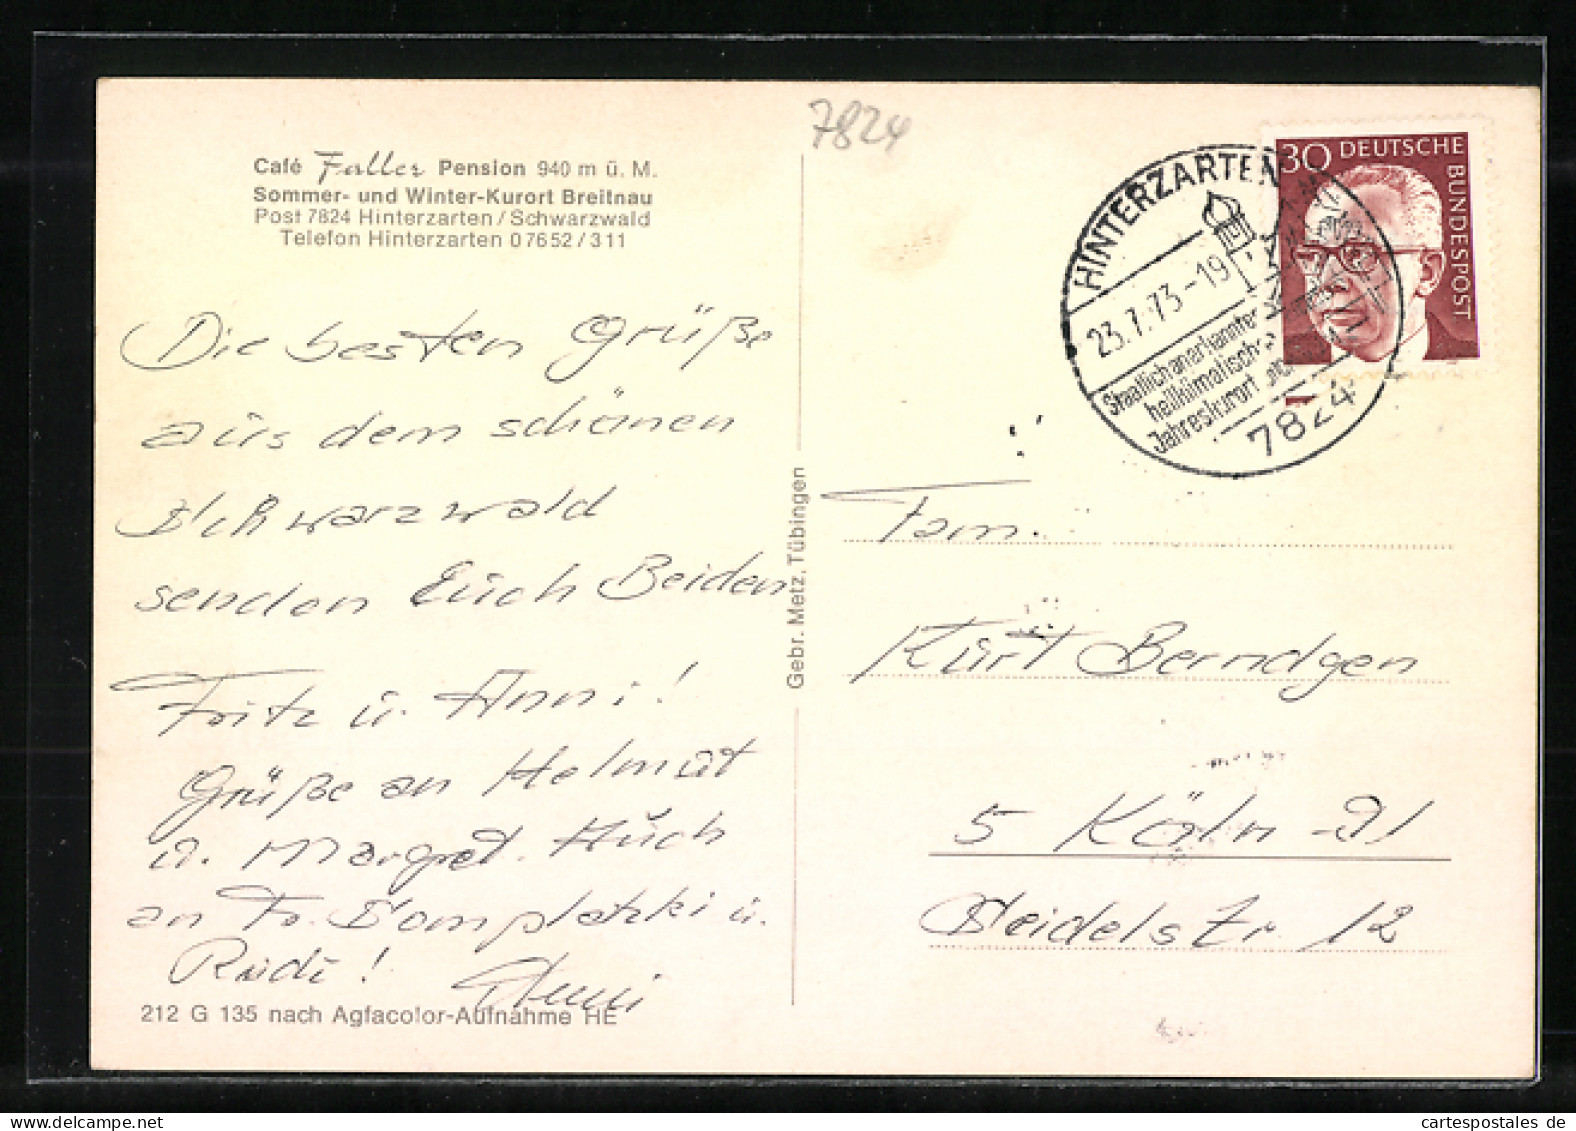 7824
Café Faller Pension 940 m ü. M.
Sommer- und Winter-Kurort Breitnau
Post 7824 Hinterzarten/Schwarzwald
Telefon Hinterzarten 07652/311
Die besten Grüße
aus dem schönen
Schwarzwald
senden Euch Beiden
Fritz u. Anni!
Grüße an Helmut
u. Margret. Auch
an Fr. u.
Rudi! Anni
212 G 135 nach Agfacolor-Aufnahme HE
Gebr. Metz, Tübingen
HINTERZARTEN
23.7.73-19
Staatlich anerkannter
heilklimatischer
Jahreskurort
7824
30 DEUTSCHE
BUNDESPOST
Fam.
Kurt Berndgen
5 Köln-91
Seidelstr. 12
cartespostales de